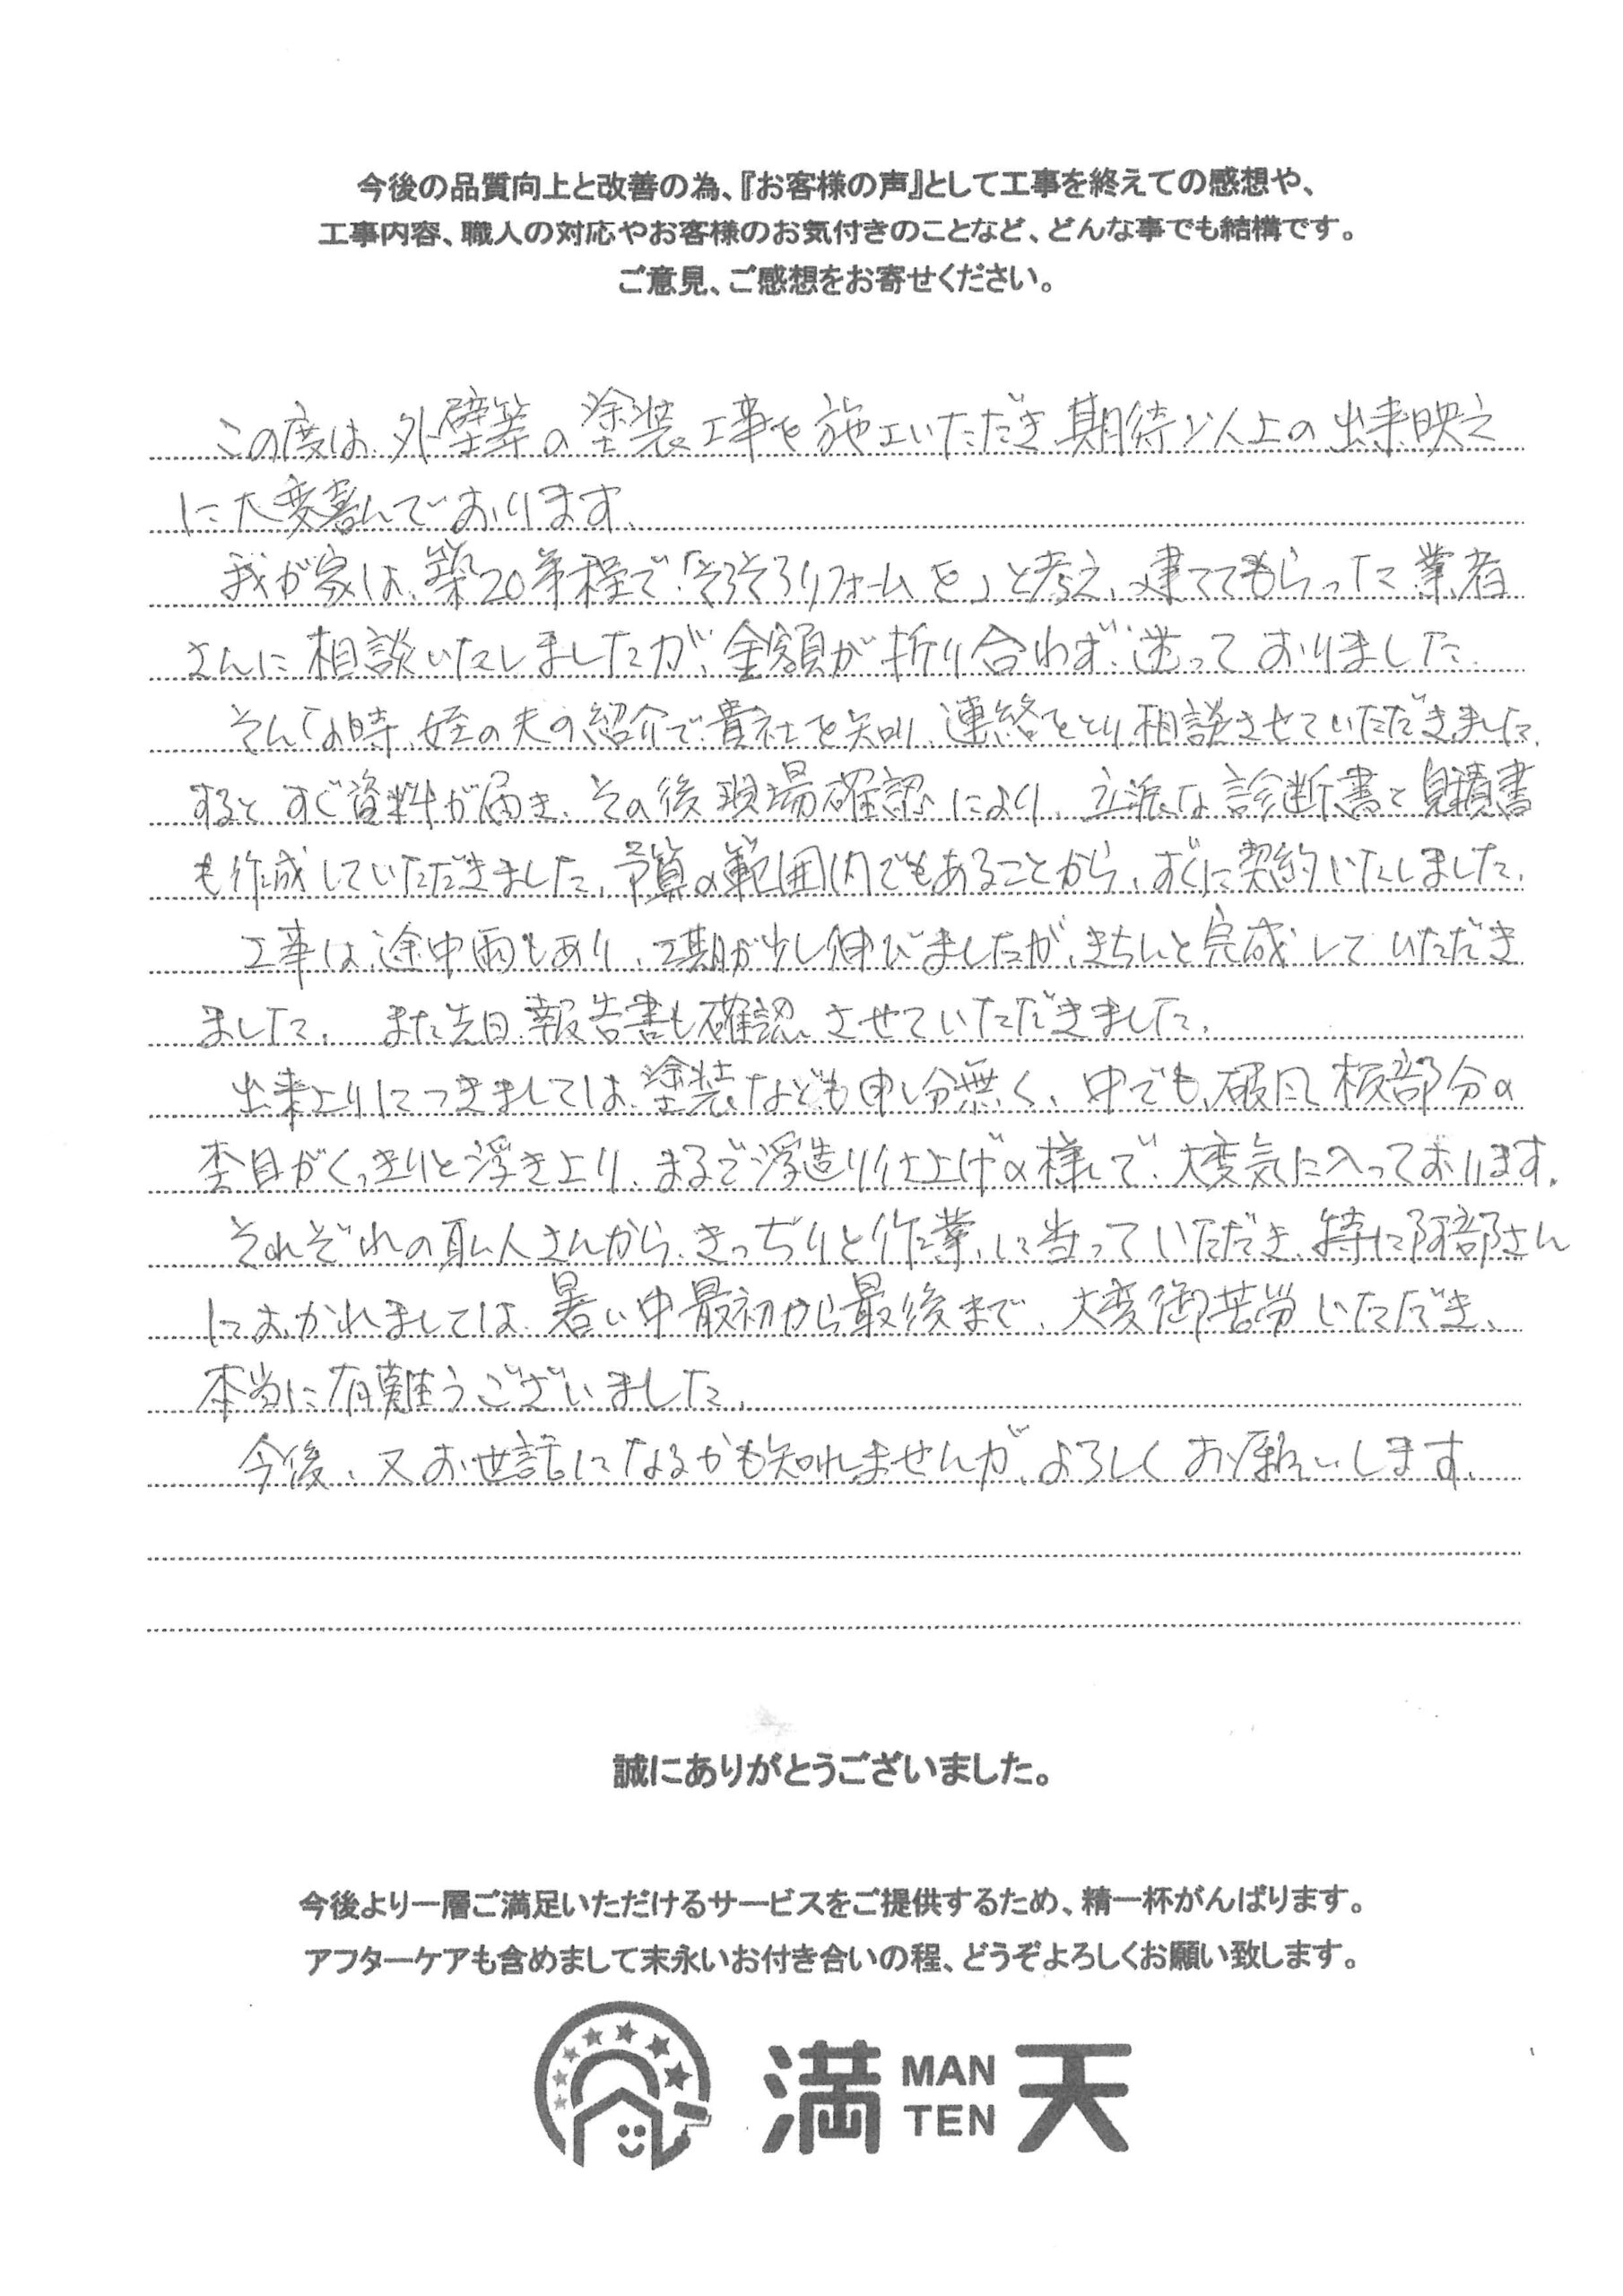 今後の品質向上と改善の為、『お客様の声』として工事を終えての感想や、
工事内容、職人の対応やお客様のお気付きのことなど、どんな事でも結構です。
ご意見、ご感想をお寄せください。
この度は、外壁等の塗装工事を施工いただき、期待以上の出来映え
に大変喜んでおります。
我が家は、築20年程で「そろそろリフォームを」と考え、建ててもらった業者
さんに相談いたしましたが、金額が折り合わず、迷っておりました。
そんな時、姪の夫の紹介で貴社を知り、連絡をとり、相談させていただきました。
すると、すぐ資料が届き、その後現場確認により、立派な診断書と見積書
も作成していただきました。予算の範囲内でもあることから、すぐに契約いたしました。
工事は、途中雨もあり、工期が少し伸びましたが、きちんと完成していただき
ました。また先日、報告書も確認させていただきました。
出来上りにつきましては、塗装なども申し分無く、中でも、破風板部分の
杢目がくっきりと浮き上り、まるで浮造り仕上げの様で、大変気に入っております。
それぞれの职人さんから、きっちりと作業に当っていただき、特に阿部さん
におかれましては、暑い中最初から最後まで、大変御苦労いただき、
本当に有難うございました。
今後、又お世話になるかも知れませんが、よろしくお願いします。
誠にありがとうございました。
今後より一層ご満足いただけるサービスをご提供するため、精一杯がんばります。
アフターケアも含めまして末永いお付き合いの程、どうぞよろしくお願い致します。
満天 MAN TEN